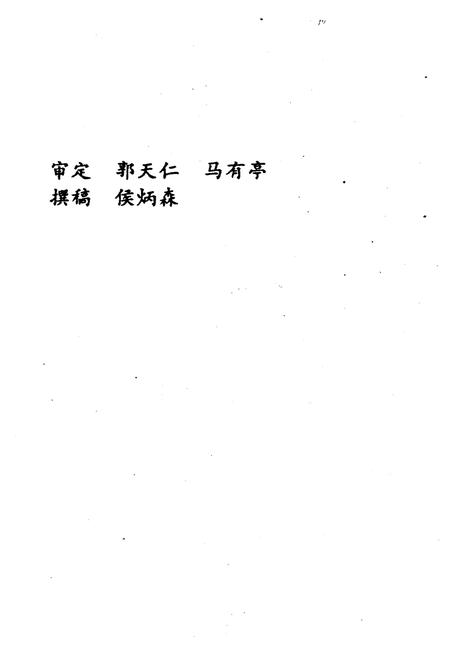 审定 郭天仁 马有亭
撰稿 侯炳森